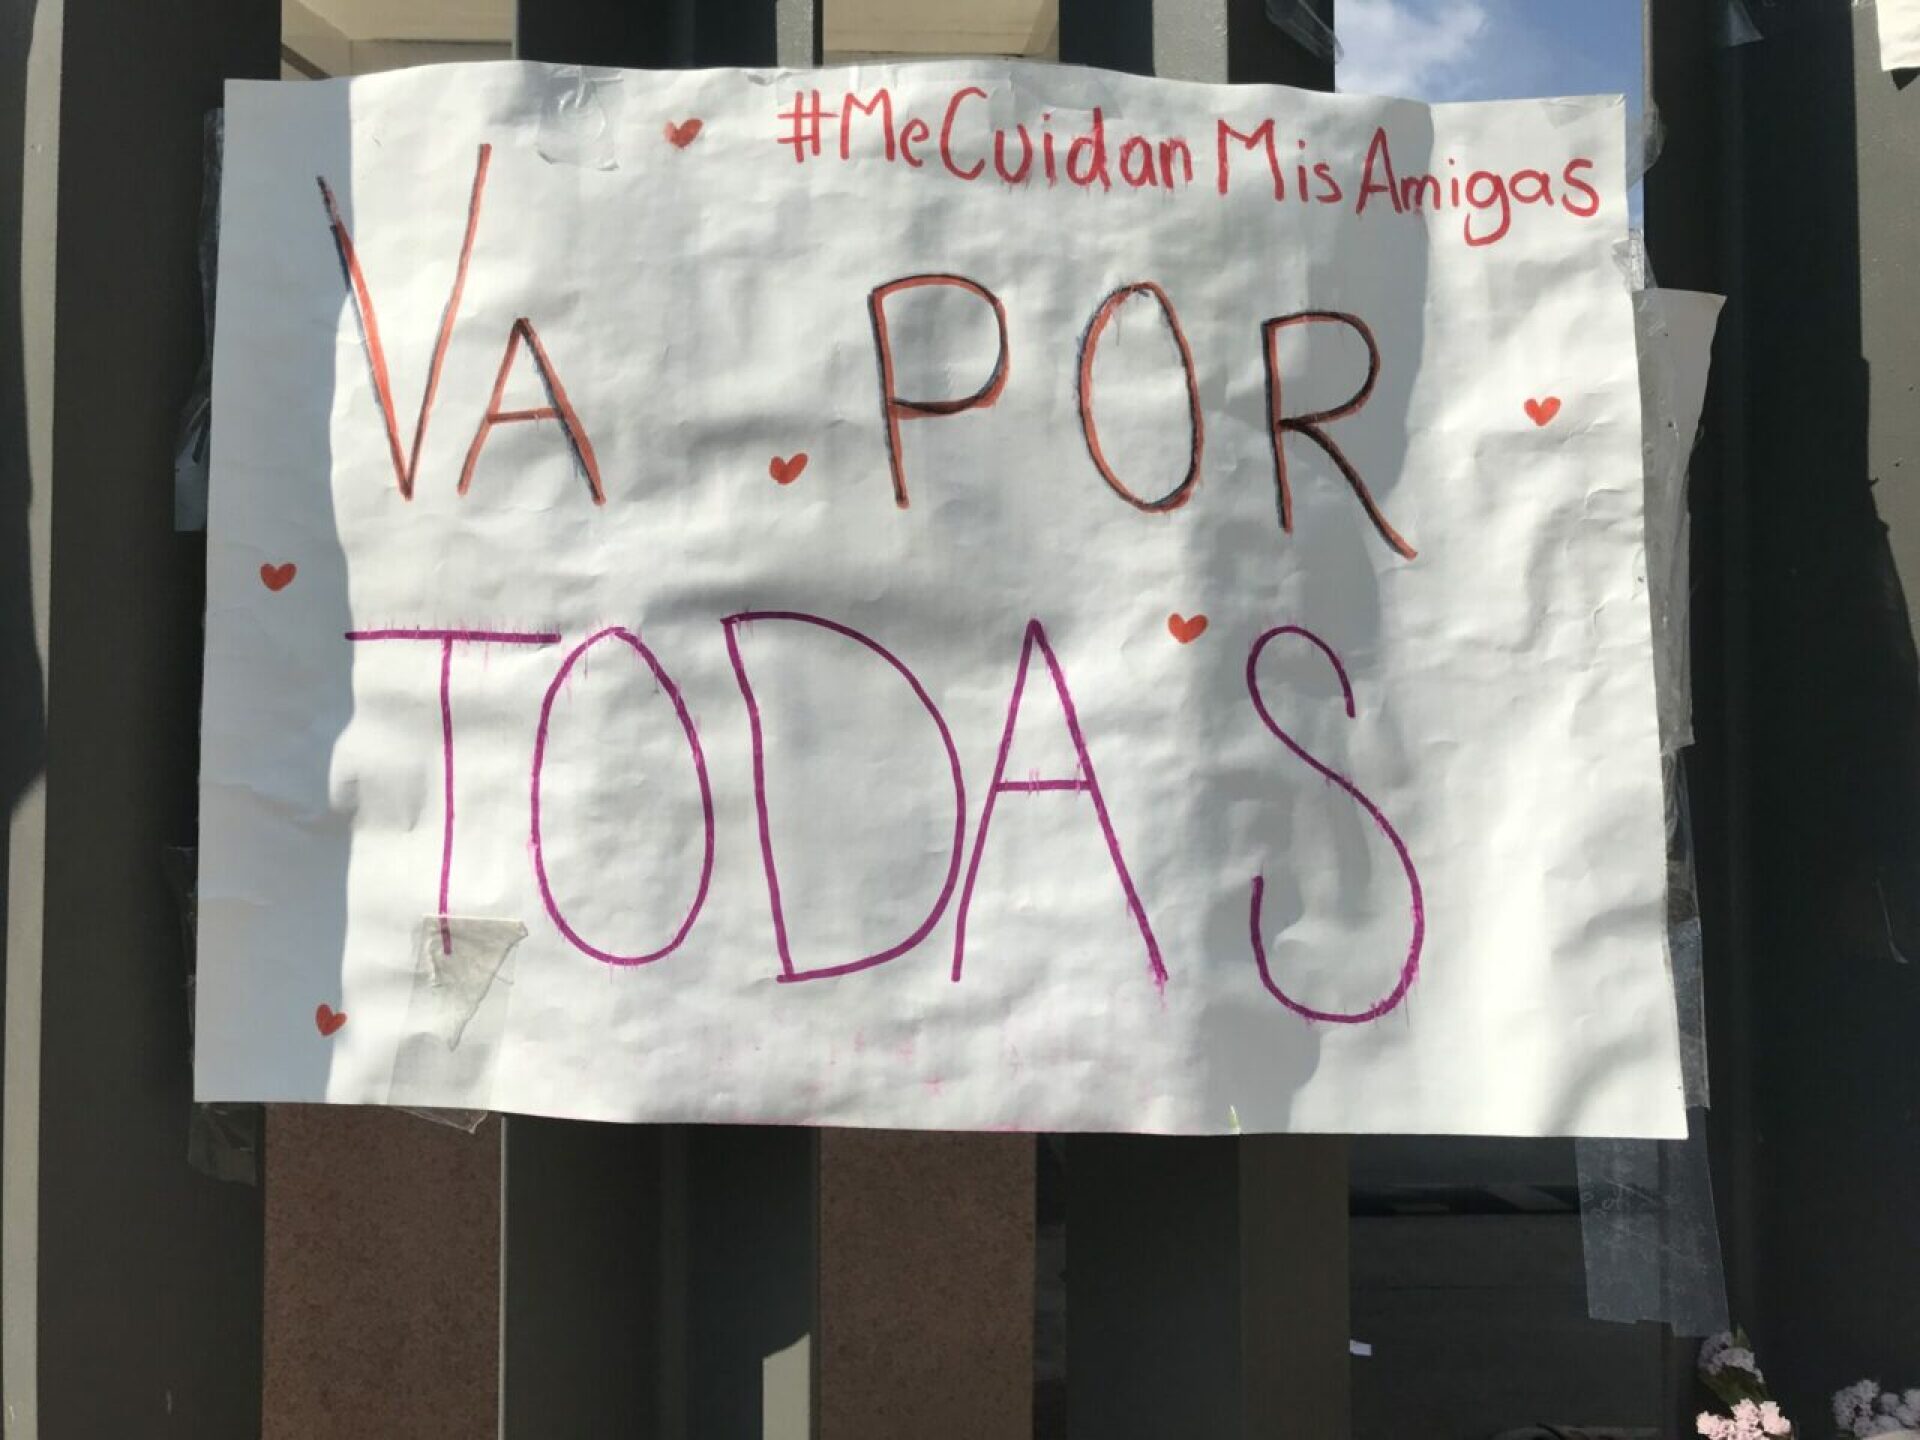 #MeCuidanMisAmigas
VA POR
TODAS